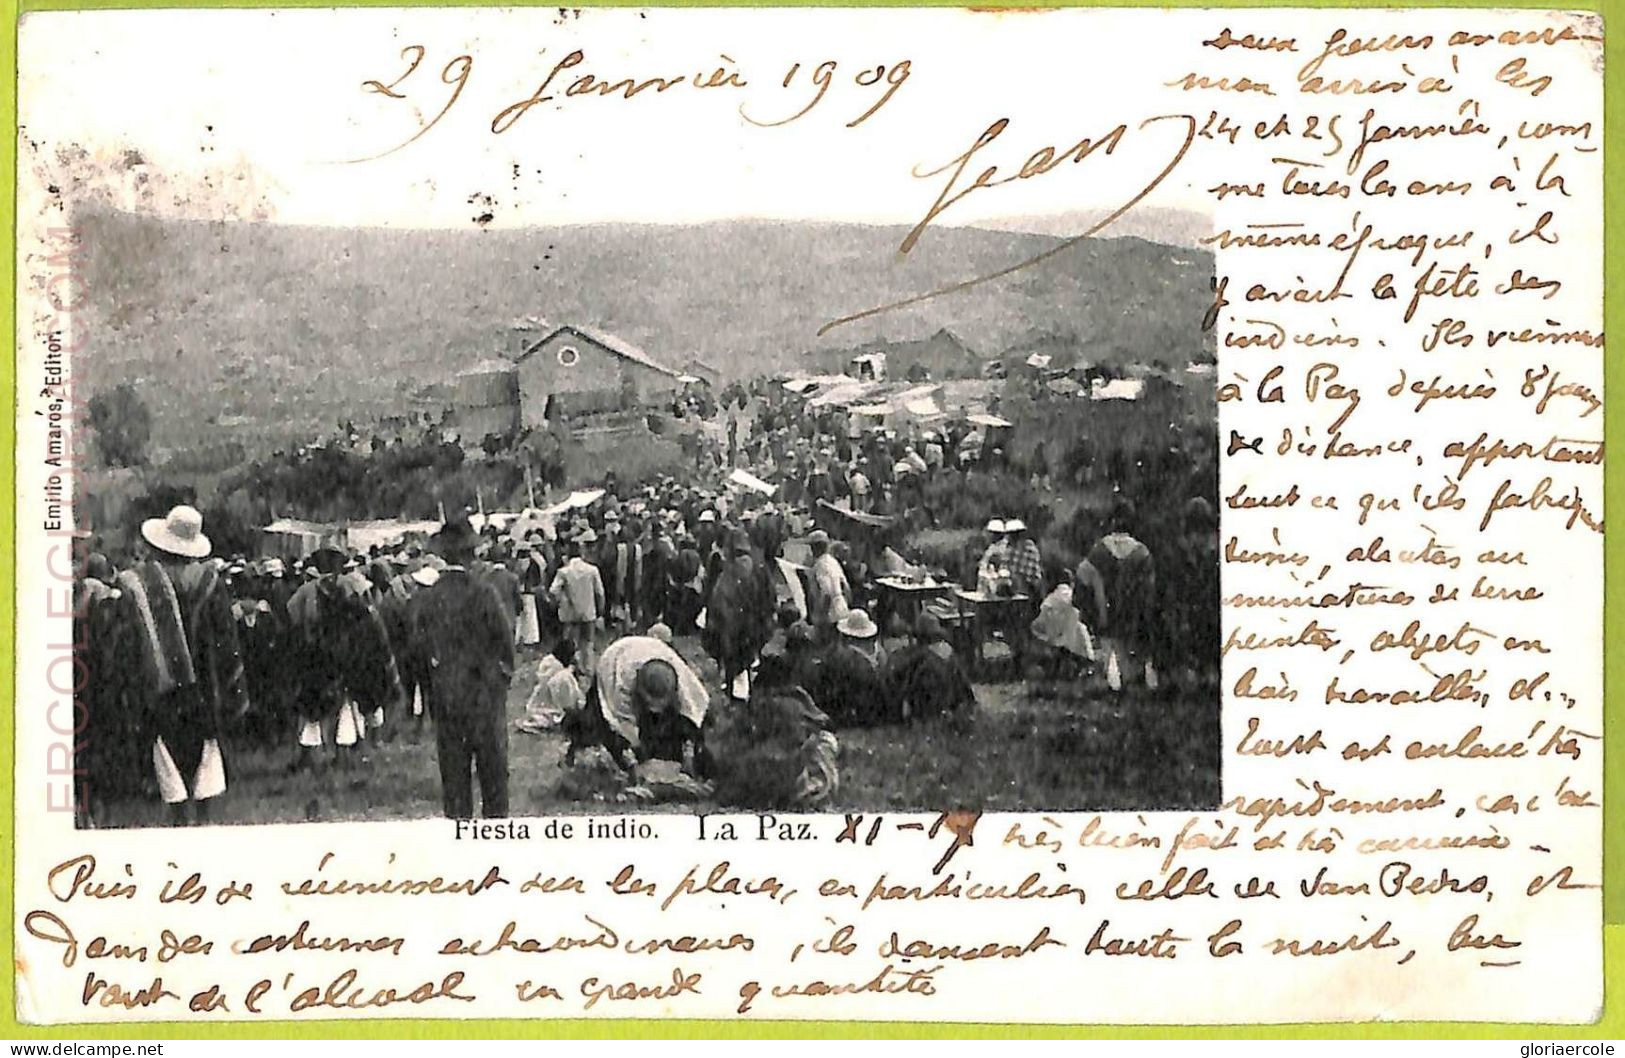 29 Janvier 1909
Jean
deux jours avant
mon arrivée les
24 et 25 Janvier, com-
me tous les ans à la
même époque, il
y avait la fête des
indiens. Ils viennent
à la Paz depuis 8 jours
de distance, apportant
tout ce qu'ils fabriquent
, en
miniatures de terre
peinte, objets en
bois travaillés, et..,
Tout est enlevé très
rapidement, car c'est
très bien fait et très curieux -
Emilio Amarós, Editor.
ERCOLEGLORIA.COM
Fiesta de indio. La Paz. XI-17
Puis ils se réunissent sur les places, en particulier celle de San Pedro, et
dans des costumes extraordinaires, ils dansent toute la nuit, bu-
vant de l'alcool en grande quantité
delcampe.net
gloriaercole